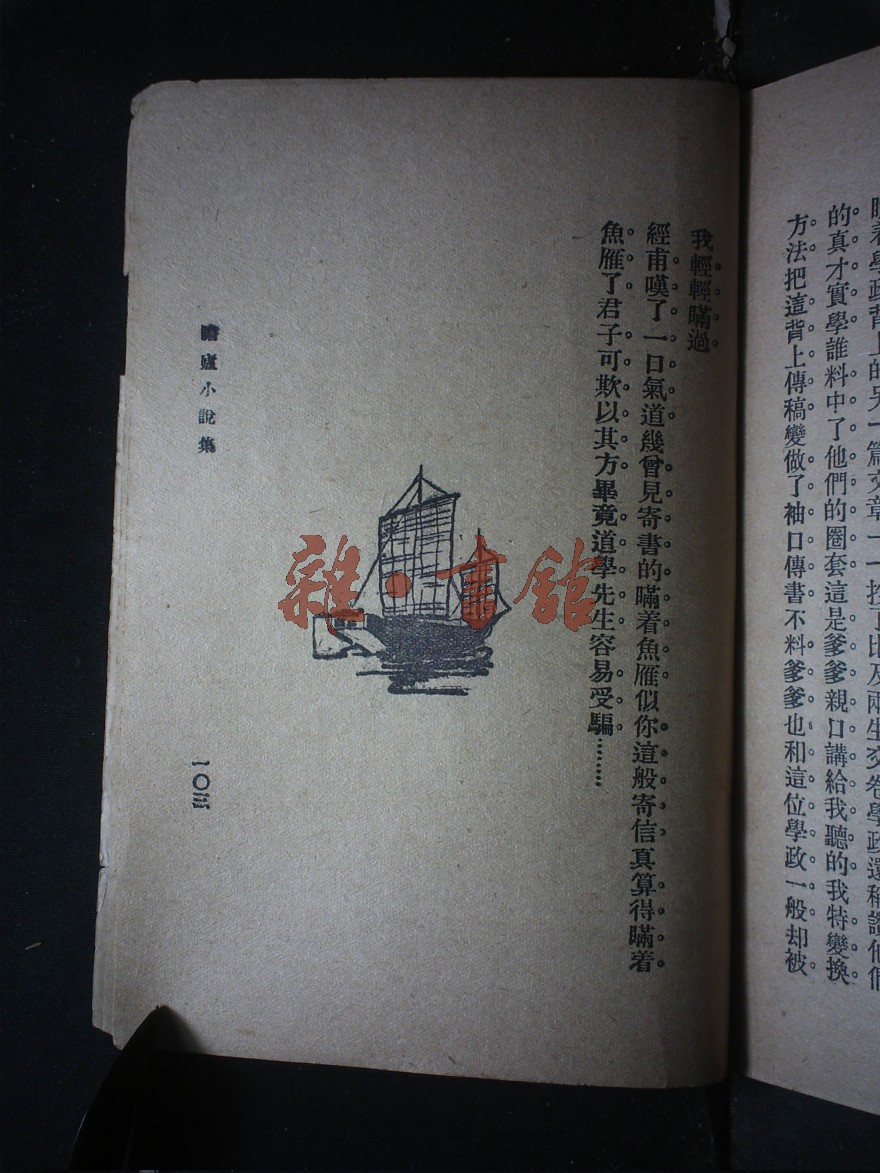 瞞着學政背上的另一篇文章一一投了比及兩生交卷學政還稱讚他們
的真才實學誰料中了他們的圈套這是爹爹親口講給我聽的我特變換
方法把這背上傳稿變做了袖口傳書不料爹爹也和這位學政一般却被
我輕輕瞞過
經甫嘆了一口氣道幾曾見寄書的瞞着魚雁似你這般寄信真算得瞞着
魚雁了君子可欺以其方畢竟道學先生容易受騙………
瞻廬小說集
一〇三
雜·書館